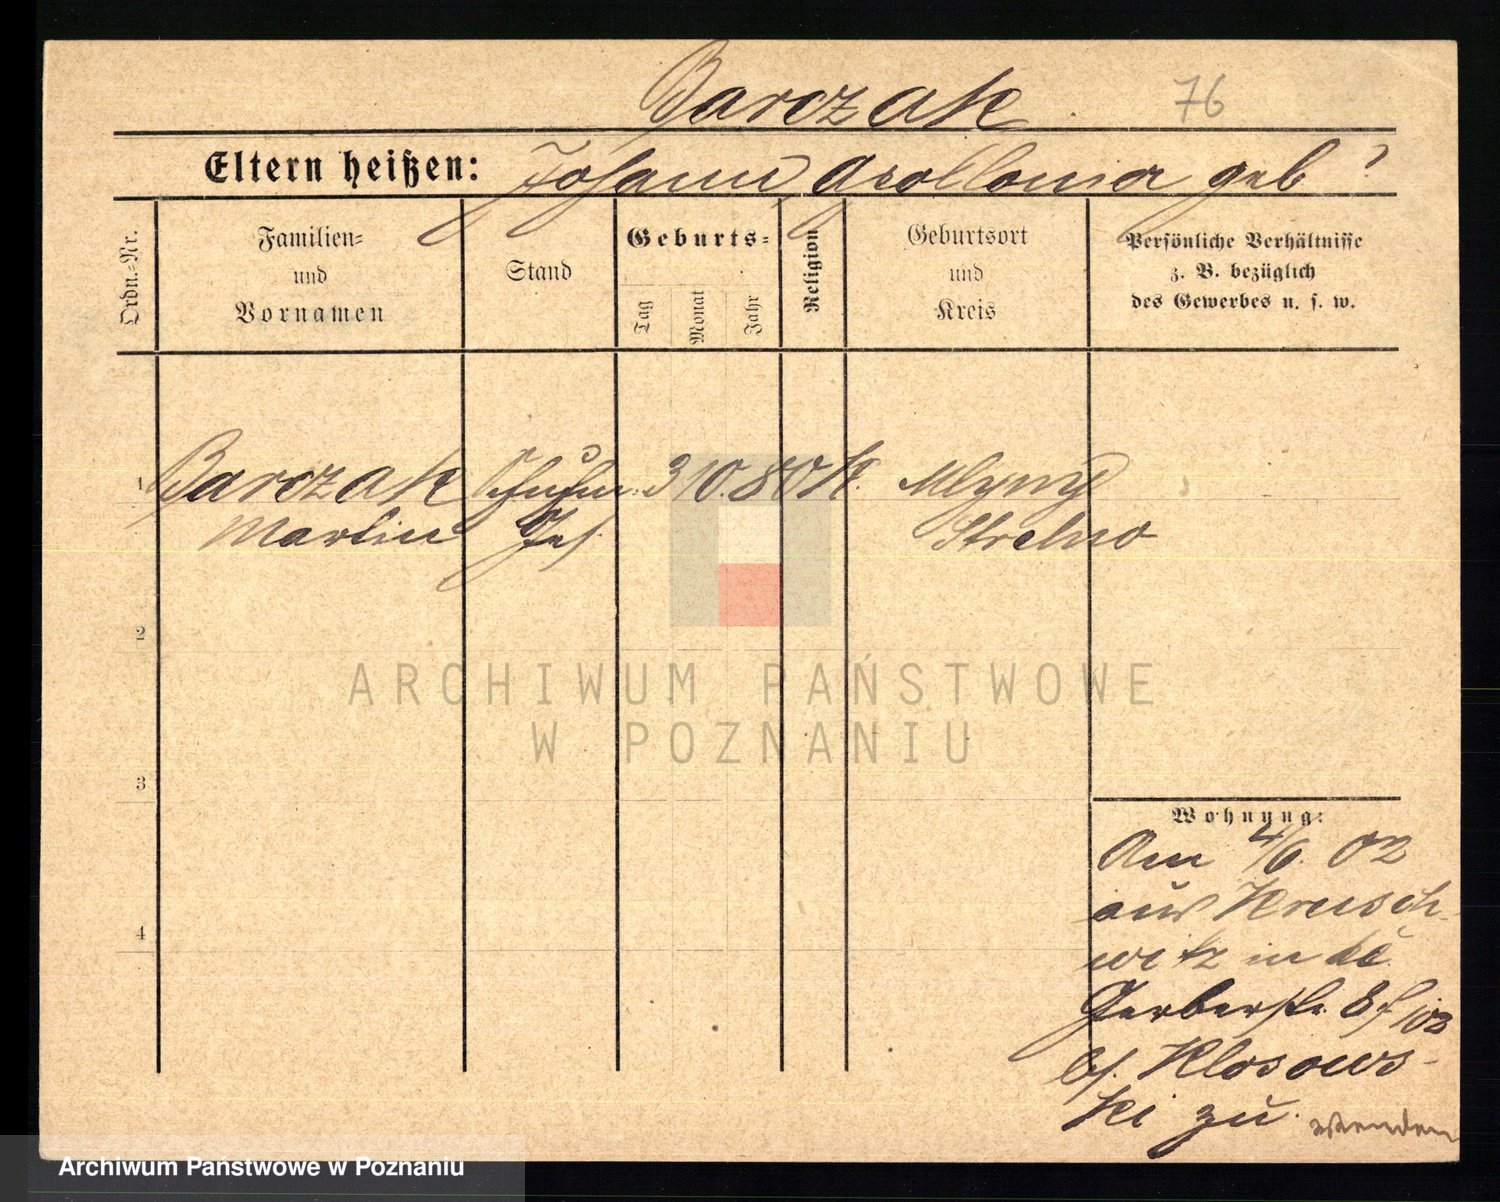 Barczak
76
Eltern heißen: Johann Apollonia geb ?
Ordn.=Nr.
Familien=
und
Vornamen
Stand
Geburts=
Tag
Monat
Jahr
Religion
Geburtsort
und
Kreis
Persönliche Verhältnisse
z. B. bezüglich
des Gewerbes u. s. w.
1 Barczak Schuhm. 3 10. 80 K. Mlyny
Martin Ges. Strelno
2
3
4
Wohnung:
Am 4/6. 02
aus Krusch
witz in
Gerberstr. 8
bei Klosows-
ki zu.
wenden
ARCHIWUM PAŃSTWOWE
W POZNANIU
Archiwum Państwowe w Poznaniu